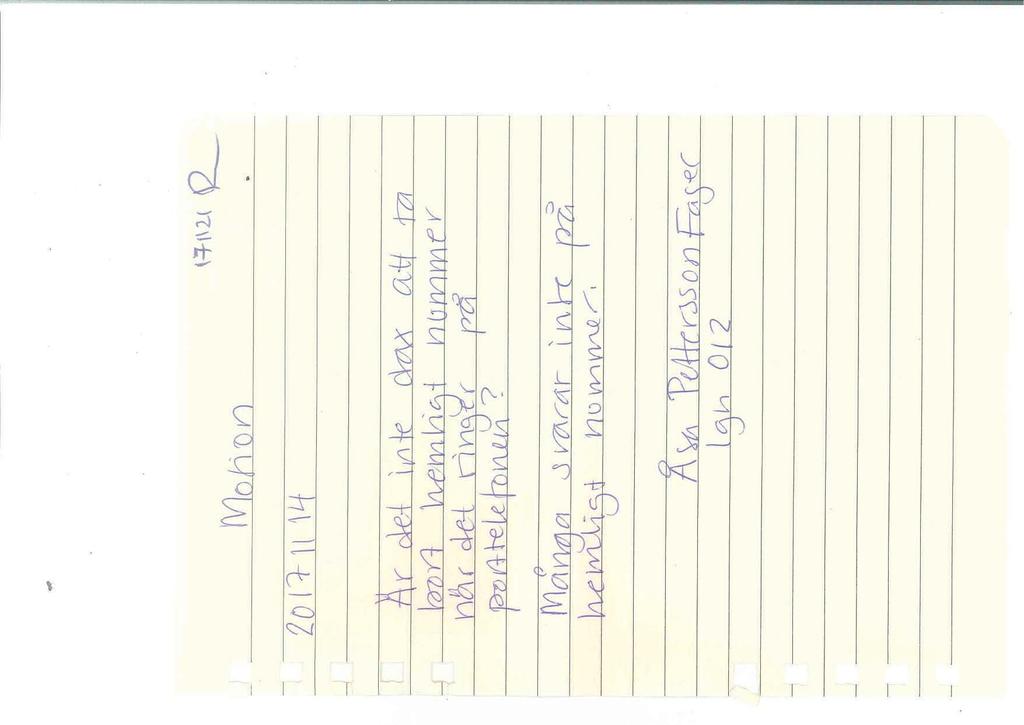 171121
Motion
20171114
Är det inte dax att ta
bort hemligt nummer
när det ringer på
porttelefonen?
Många svarar inte på
hemligt nummer.
Åsa Pettersson Fager
lgh 012